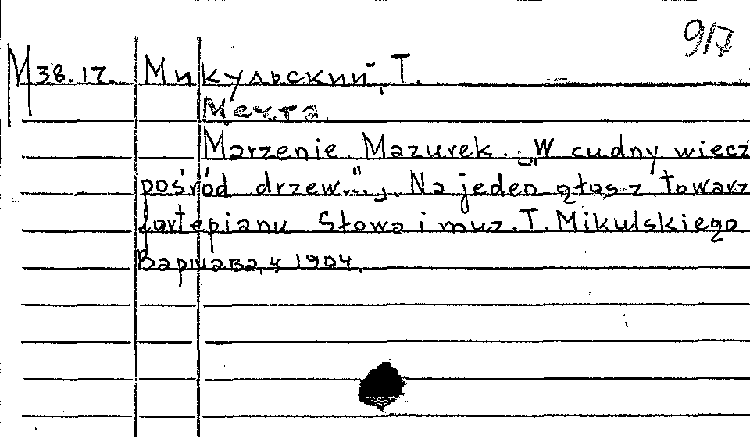 917
М38.17. Микульский, Т.
Мечта.
Marzenie. Mazurek. „W cudny wiecz
pośród drzew...”. Na jeden głos z towarz
fortepianu Słowa i muz. T. Mikulskiego
Варшава, 1904.